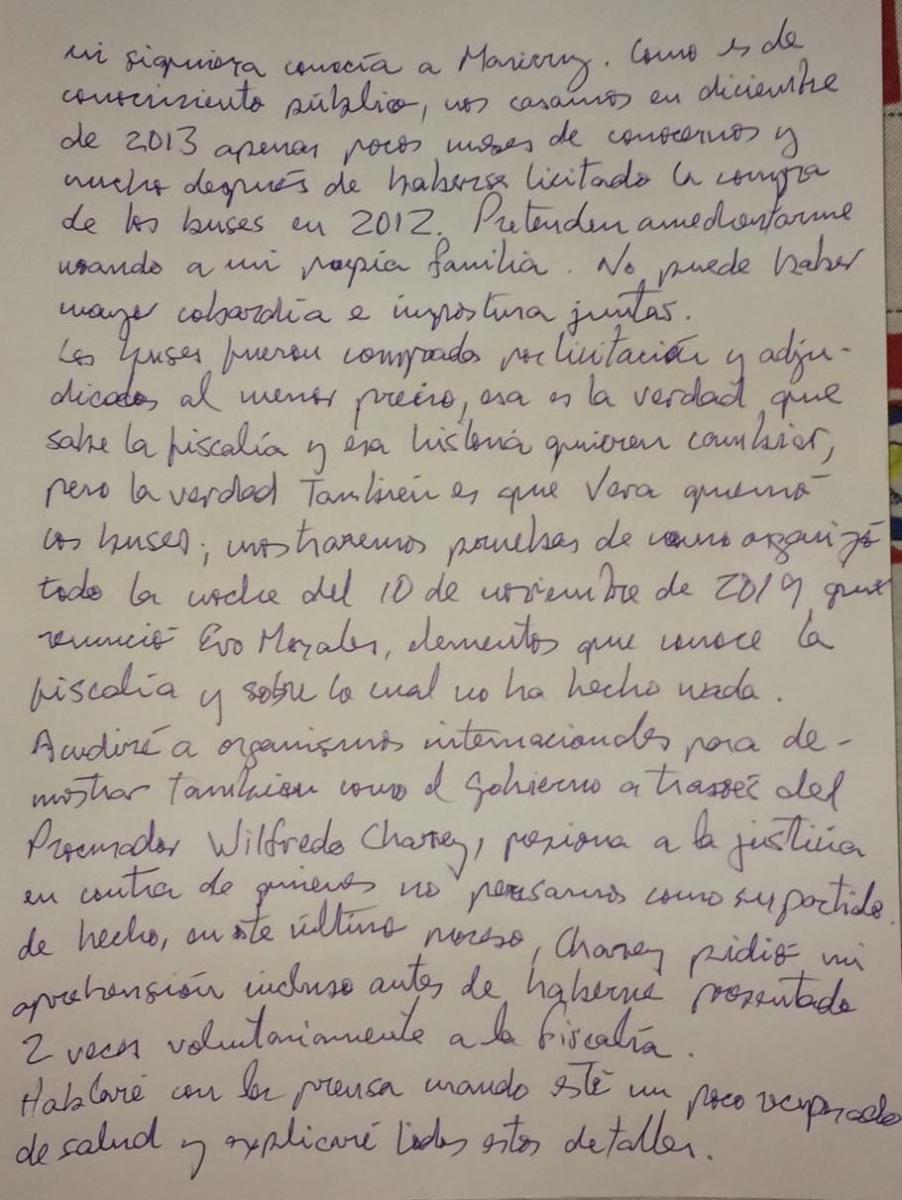 ni siquiera conocía a Maricruz. Como es de
conocimiento público, nos casamos en diciembre
de 2013 apenas pocos meses de conocernos y
mucho después de haberse licitado la compra
de los buses en 2012. Pretenden amedrentarme
usando a mi propia familia. No puede haber
mayor cobardía e impostura juntas.
Los buses fueron comprados por licitación y adju-
dicados al menor precio, esa es la verdad que
sabe la fiscalía y esa historia quieren cambiar,
pero la verdad También es que Vera quemó
los buses; mostraremos pruebas de como organizó
todo la noche del 10 de noviembre de 2019 que
renunció Evo Morales, elementos que conoce la
fiscalía y sobre lo cual no ha hecho nada.
Acudiré a organismos internacionales para de-
mostrar tambien como el gobierno a través del
Procurador Wilfredo Chavez, presiona a la justicia
en contra de quienes no pensamos como su partido.
de hecho, en este último proceso, Chavez pidió mi
aprehensión incluso antes de haberme presentado
2 veces voluntariamente a la fiscalía.
Hablaré con la prensa cuando esté un poco recuperado
de salud y explicaré todos estos detalles.